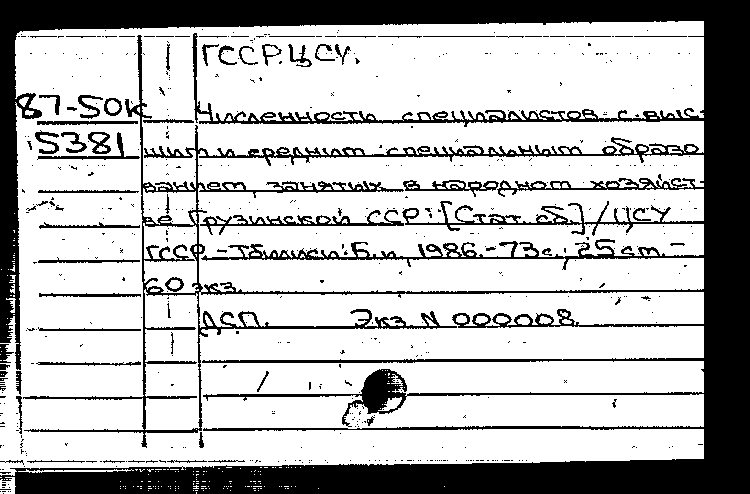 ГССР. ЦСУ.
87-50к Численность специалистов с выс-
5381 шим и средним специальным образо
ванием, занятых в народном хозяйст-
ве Грузинской ССР: [Стат. сб] / ЦСУ
ГССР. - Тбилиси: Б.и, 1986. - 73с.; 25см. -
60 экз.
ДСП. Экз. N 000008.